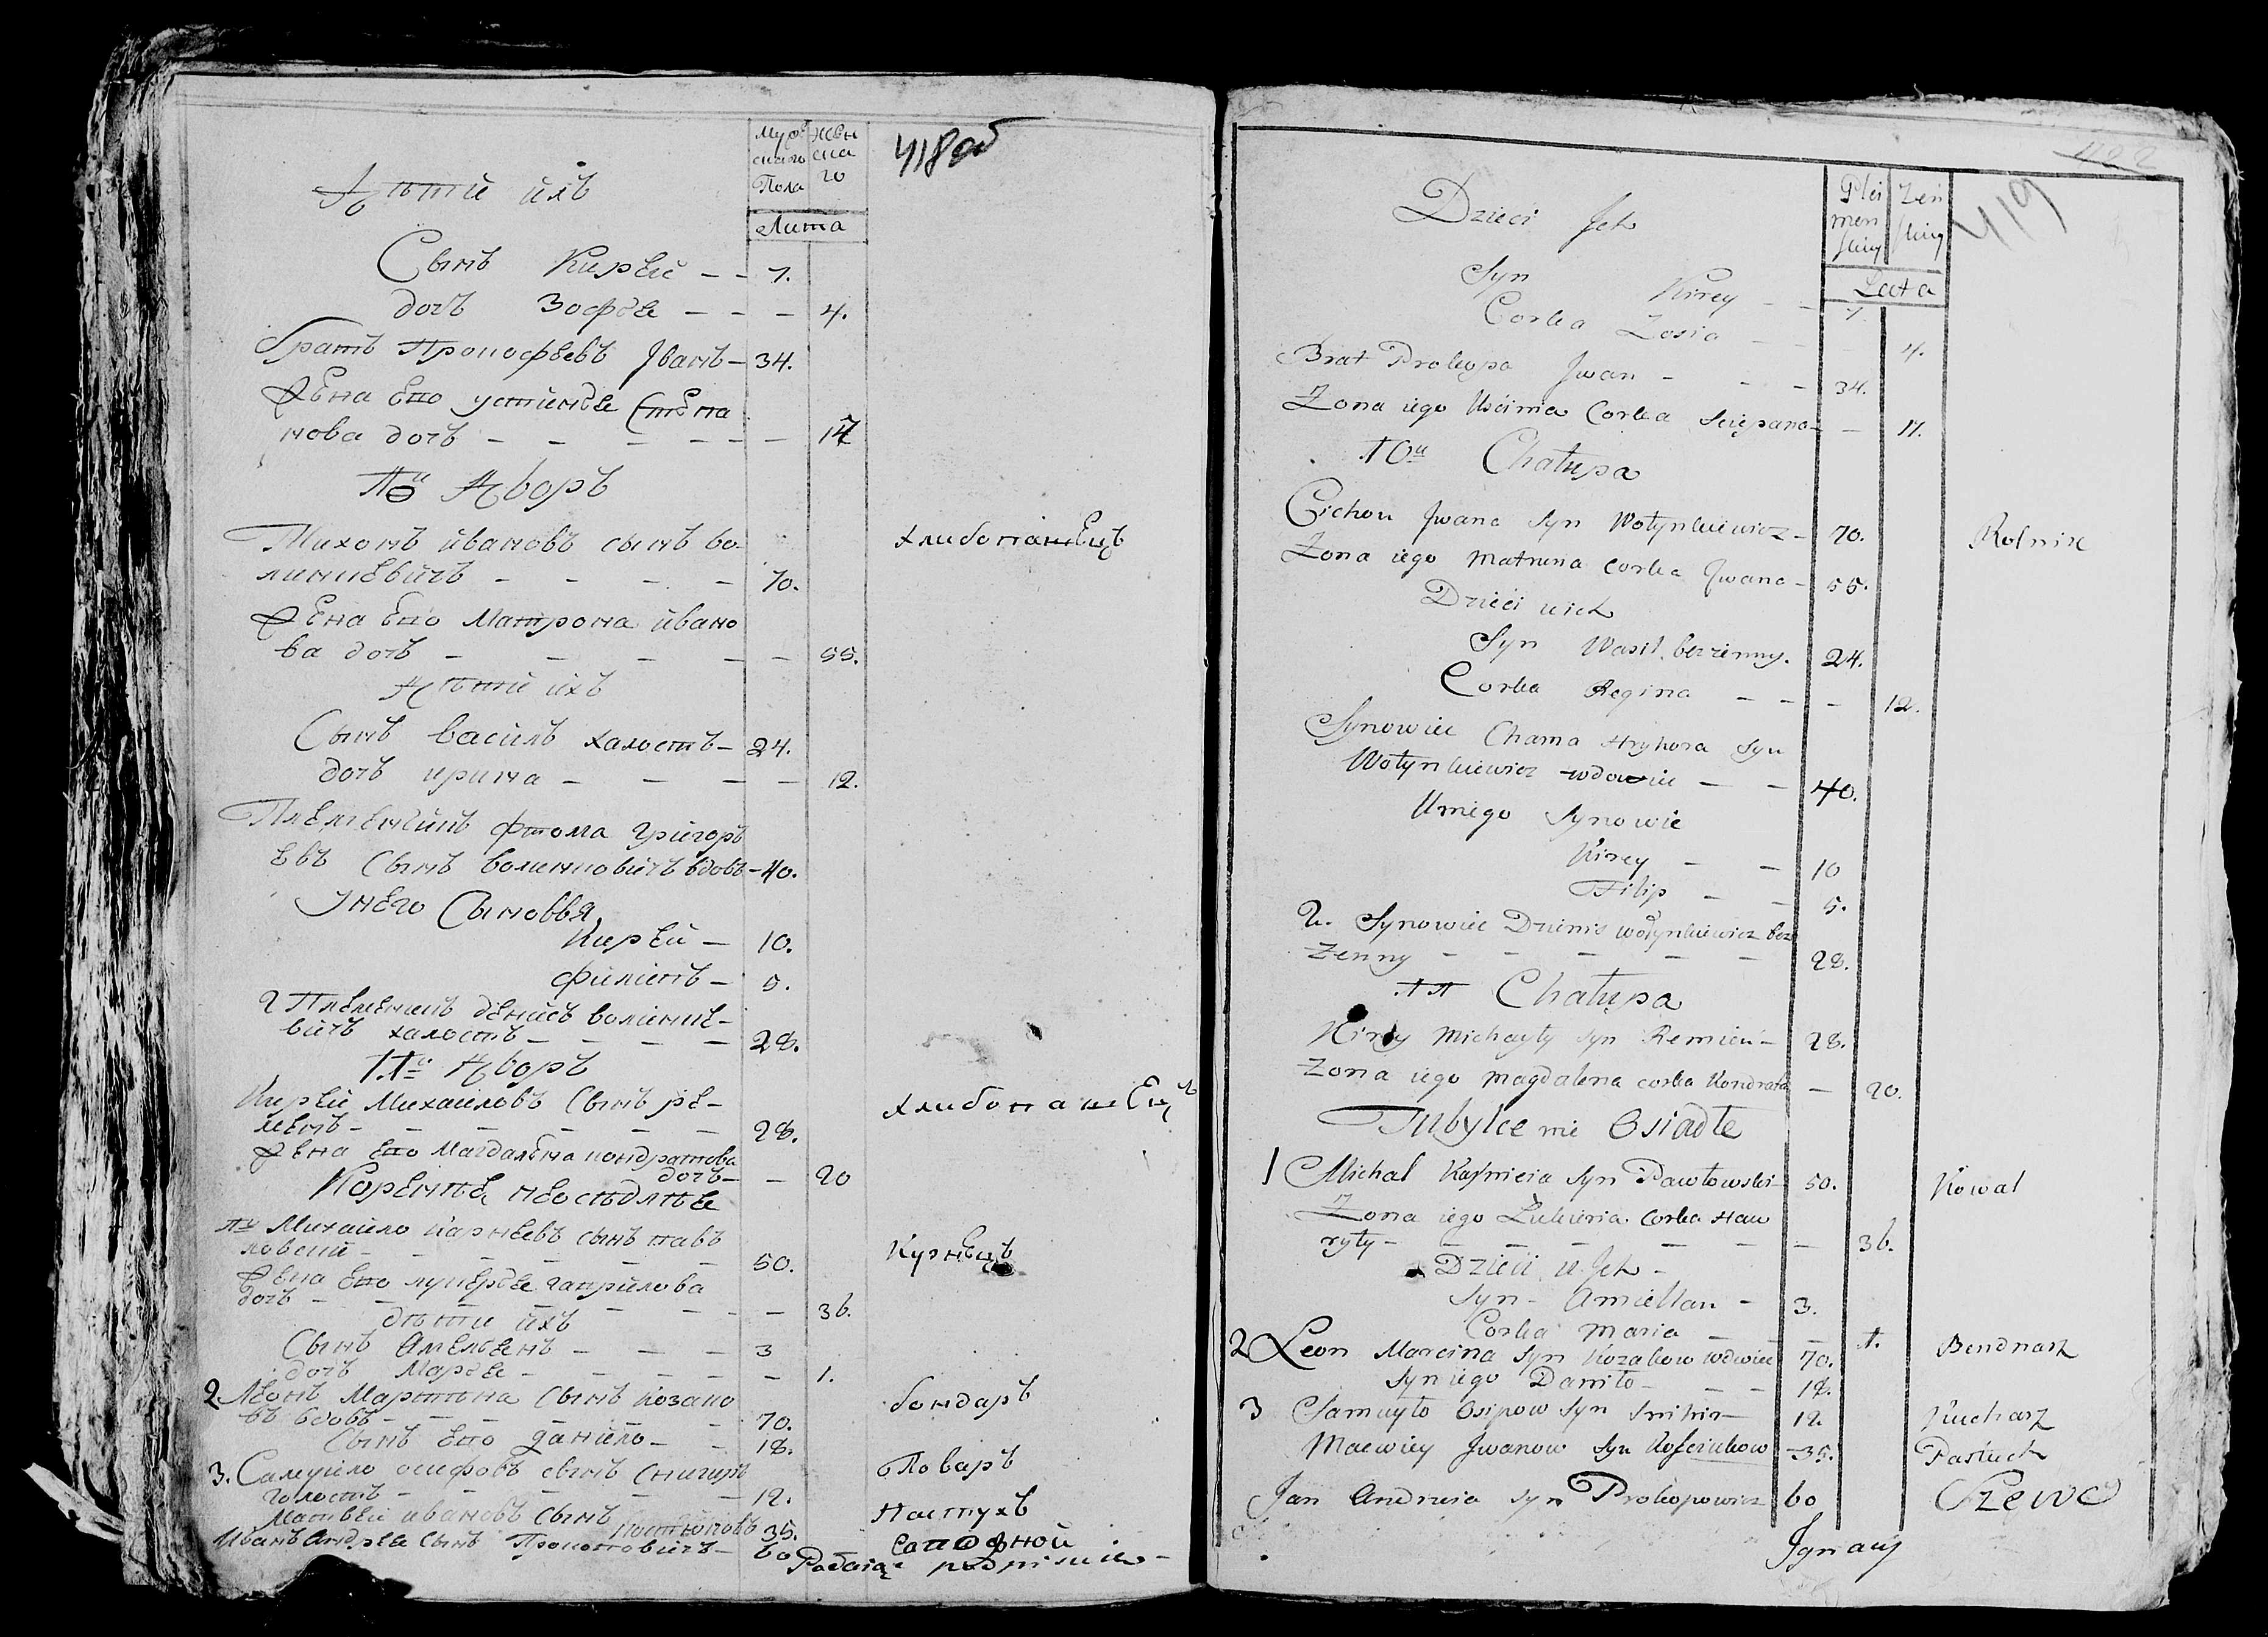 418 об
Муже Женс
скаго ска
Пола го
Лита
Дѣти ихъ
Сынъ Кирѣй - - 7.
дочъ Зофѣе - - - 4.
братъ Прокофѣевъ Jванъ - 34.
Жена Его устинѣе Стѣпа
нова дочъ - - - - - - 17
10й Дворъ
Тихонъ ивановъ сынъ во
линкевичъ - - - - 70. хлибопашецъ
Жена Его Матрона ивано
ва дочъ - - - - - 55.
Дѣти ихъ
Сынъ василъ халостъ - 24.
дочъ ирина - - - - 12.
Племенникъ фтома григоръ
евъ Сынъ волинковичъ вдовъ - 40.
Унего Сыновья
Кирѣй - 10.
филипъ - 5.
2 Племеникъ денисъ волинке-
вичъ халостъ - - - - 28.
11й Дворъ
Кирѣй Михаиловъ Сынъ ре-
менъ - - - - - - 28. хлибопашецъ
Жена Его Магдалена кондратова
дочъ - - 20
Коренные неоседлые
1й Михаило карнеевъ сынъ павъ
ловский - - - - 50. Кузнецъ
Жена Его лукерѣе гаврилова
дочъ - - - - - - - 36.
дѣти ихъ
Сынъ Амелѣенъ - - - 3
дочъ Марѣе - - - - - 1.
2 Леонъ Мартина Сынъ козако
въ вдовъ - - - - - 70. бондаръ
Сынъ Его данило - - 18.
3. Самуило осифовъ сынъ Снигиръ
голостъ - - - - - 12. Поваръ
Матвей ивановъ Сынъ
Костюковъ 35. Пастухъ
Иванъ Андрѣе Сынъ Прокоповичъ - 60 Сапожной
Podaiąc podpisuie -
419
Płci Żeń
męn skiey
skiey
Lata
Dzieci Jch
Syn Kirey - - 7.
Corka Zosia - - - 4.
Brat Prokopa Jwan - - - 34.
Zona iego Uscinia Corka Sciepana - - 17.
10a Chałupa
Cichon Jwana Syn Wołynkiewicz - 70. Rolnik
Zona iego Matruna corka Jwana - 55.
Dzieci uich
Syn Wasil bezzenny. 24.
Corka Regina - - - 12.
Synowiec Chama Hryhora Syn
Wołynkiewicz wdowiec - - 40.
Uniego Synowie
Kirey - - 10
Filip - - 5.
2. Synowiec Dzienis wołynkiewicz bez
zenny - - - - - 28.
11 Chałupa
Kirey Michayły syn Remień - 28.
Zona iego Magdalena corka Kondrata - 20.
Tubylce nie Osiadłe
1 Michał Kaźmieia Syn Pawłowski - 50. Kowal
Zona iego Łukieria Corka Haw
ryły - - - - - - - 36.
Dzieci u Jch -
Syn - Amiellan - 3.
Corka Maria - - - 1.
2 Leon Marcina Syn Kozakow wdwiec 70. Bendnarz
Syn iego Daniło - - - 18.
3 Samuyło Osipow Syn Snihir - 12. Kucharz
Maewiey Jwanow Syn Kosciukow - 35. Pastuch
Jan Andrzeia syn Prokopowicz 60 Szewc
Jgnacy